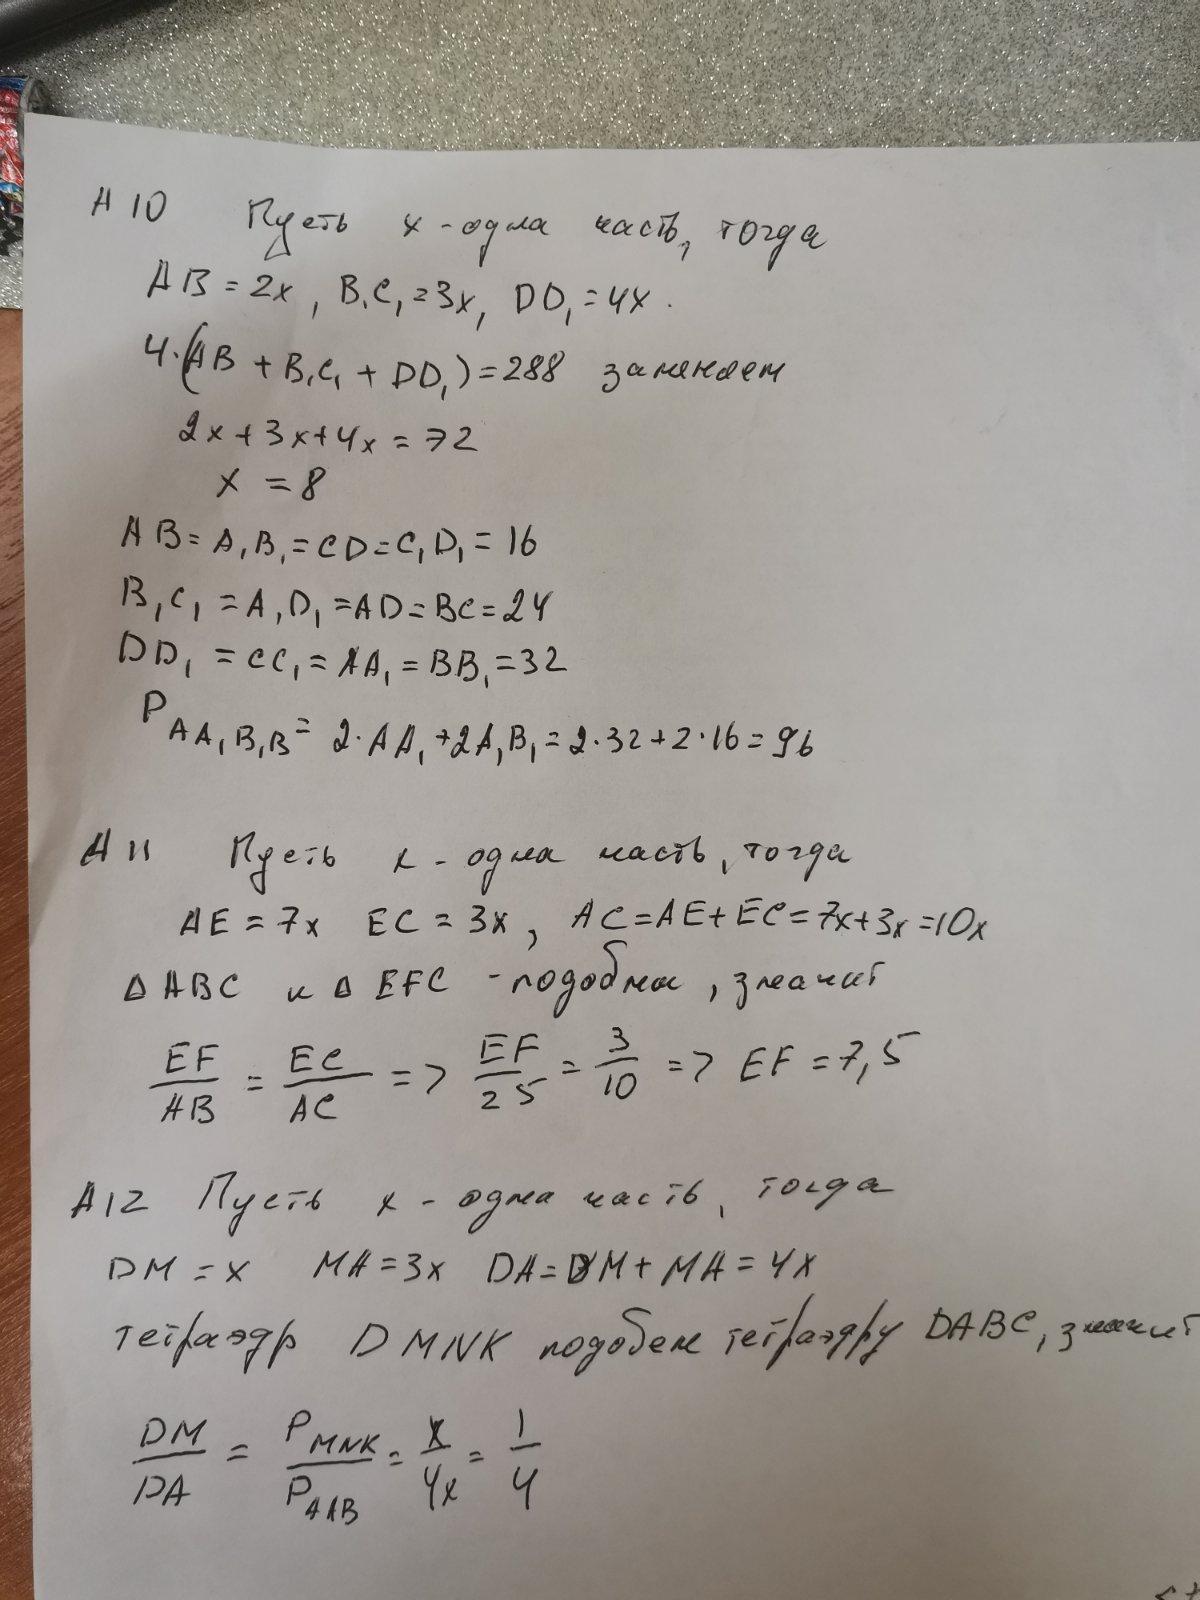 А 10 Пусть x - одна часть, тогда
AB = 2x, B₁C₁ = 3x, DD₁ = 4x.
4·(AB + B₁C₁ + DD₁) = 288 заменяем
2x + 3x + 4x = 72
x = 8
AB = A₁B₁ = CD = C₁D₁ = 16
B₁C₁ = A₁D₁ = AD = BC = 24
DD₁ = CC₁ = AA₁ = BB₁ = 32
P AA₁B₁B = 2·AA₁ + 2A₁B₁ = 2·32 + 2·16 = 96
А 11 Пусть x - одна часть, тогда
AE = 7x EC = 3x, AC = AE + EC = 7x + 3x = 10x
Δ ABC и Δ EFC - подобны, значит
EF/AB = EC/AC => EF/25 = 3/10 => EF = 7,5
А12 Пусть x - одна часть, тогда
DM = x MA = 3x DA = DM + MA = 4x
тетраэдр DMNK подобен тетраэдру DABC, значит
DM/DA = P MNK / P AAB = x/4x = 1/4